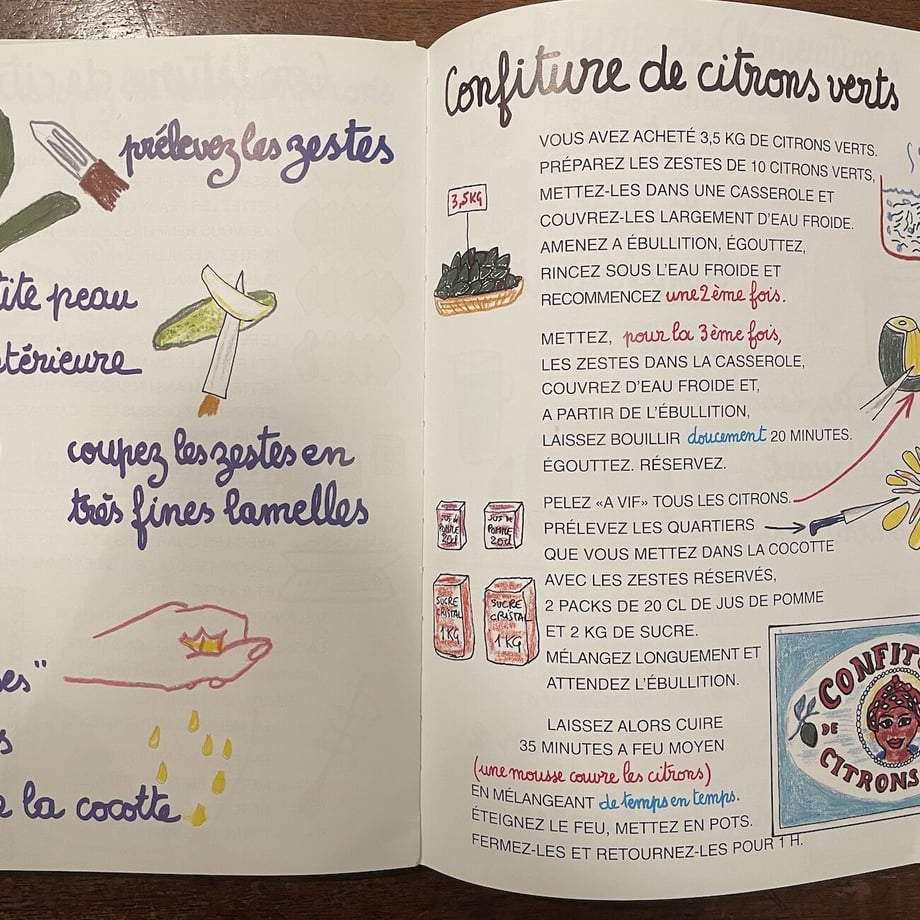 prélevez les zestes
tite peau
térieure
coupez les zestes en
très fines lamelles
es"
s
la cocotte
Confiture de citrons verts
VOUS AVEZ ACHETÉ 3,5 KG DE CITRONS VERTS.
PRÉPAREZ LES ZESTES DE 10 CITRONS VERTS,
METTEZ-LES DANS UNE CASSEROLE ET
COUVREZ-LES LARGEMENT D'EAU FROIDE.
AMENEZ A ÉBULLITION, ÉGOUTTEZ,
RINCEZ SOUS L'EAU FROIDE ET
RECOMMENCEZ une 2ème fois.
3,5KG
METTEZ, pour la 3ème fois,
LES ZESTES DANS LA CASSEROLE,
COUVREZ D'EAU FROIDE ET,
A PARTIR DE L'ÉBULLITION,
LAISSEZ BOUILLIR doucement 20 MINUTES.
ÉGOUTTEZ. RÉSERVEZ.
PELEZ «A VIF» TOUS LES CITRONS.
PRÉLEVEZ LES QUARTIERS
QUE VOUS METTEZ DANS LA COCOTTE
AVEC LES ZESTES RÉSERVÉS,
2 PACKS DE 20 CL DE JUS DE POMME
ET 2 KG DE SUCRE.
MÉLANGEZ LONGUEMENT ET
ATTENDEZ L'ÉBULLITION.
JUS de
POMME
20cl
JUS de
POMME
20cl
SUCRE
CRISTAL
1KG
SUCRE
CRISTAL
1KG
LAISSEZ ALORS CUIRE
35 MINUTES A FEU MOYEN
(une mousse couvre les citrons)
EN MÉLANGEANT de temps en temps.
ÉTEIGNEZ LE FEU, METTEZ EN POTS.
FERMEZ-LES ET RETOURNEZ-LES POUR 1 H.
CONFIT
DE
CITRONS